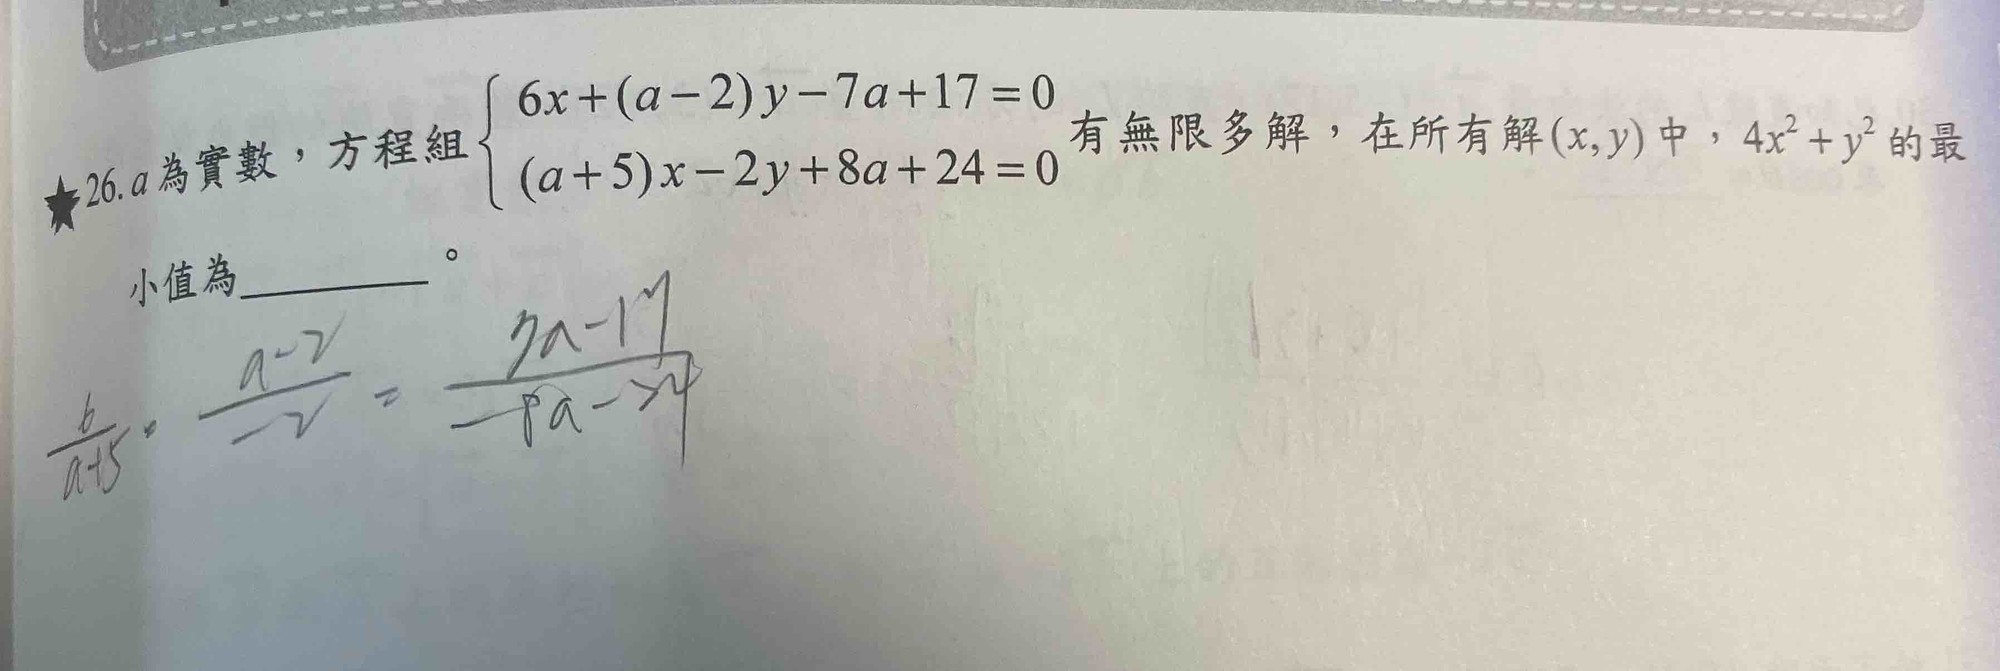 ★26. a 為實數，方程組 { 6x+(a−2)y−7a+17=0
(a+5)x−2y+8a+24=0 有無限多解，在所有解(x,y)中，4x²+y²的最
小值為________。
6/(a+5) = (a-2)/(-2) = (7a-17)/(-8a-24)